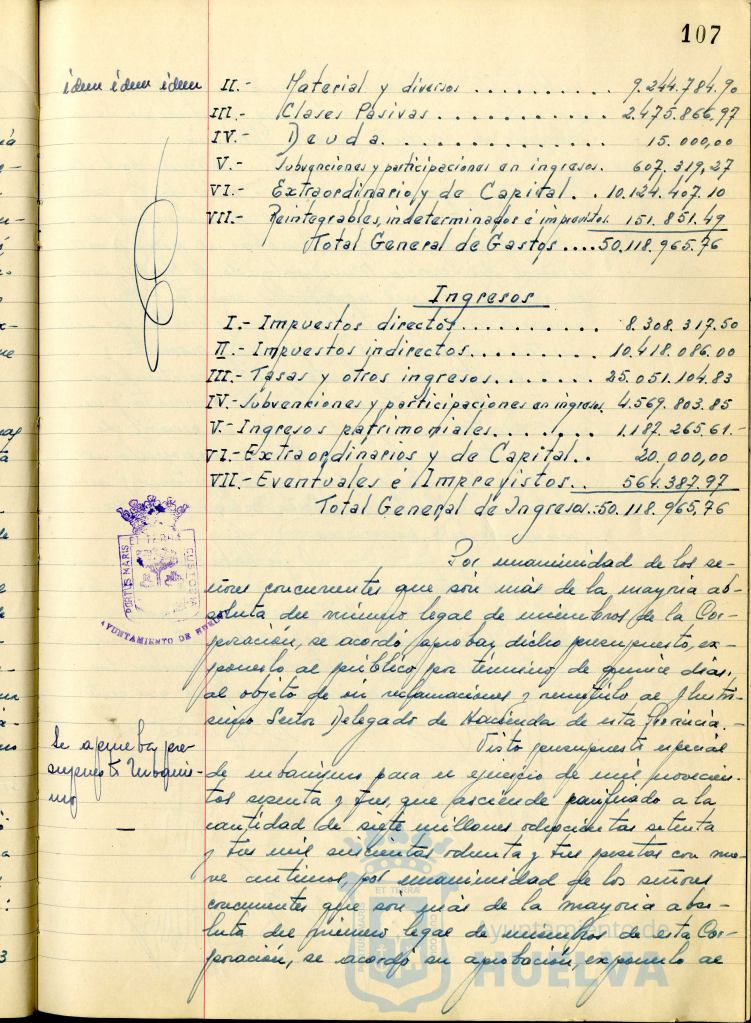 107
ídem ídem ídem
II.- Material y diversos .......... 9.244.784.90
III.- Clases Pasivas ............. 2.475.866,97
IV.- Deuda .............. 15.000,00
V.- Subvenciones y participaciones en ingresos. 607.319,27
VI.- Extraordinario y de Capital .. 10.124.407.10
VII.- Reintegrables, indeterminados e imprevistos. 151.851.49
Total General de Gastos .... 50.118.965.76
Ingresos
I.- Impuestos directos .......... 8.308.317.50
II.- Impuestos indirectos ......... 10.418.086.00
III.- Tasas y otros ingresos ........ 25.051.104.83
IV.- Subvenciones y participaciones en ingresos. 4.569.803.85
V.- Ingresos patrimoniales ........ 1.187.265,61.-
VI.- Extraordinarios y de Capital .. 20.000,00
VII.- Eventuales é Imprevistos .. 564.387.97
Total General de Ingresos .. 50.118.965,76
Por unanimidad de los se-
ñores concurrentes que son más de la mayoria ab-
soluta del número legal de miembros de la Cor-
poración, se acordó aprobar dicho presupuesto, ex-
ponerlo al público por término de quince días,
al objeto de oir reclamaciones y remitirlo al Ilustrí-
simo Señor Delegado de Hacienda de esta Provincia.
PORTUS MARIS ET TERRAE CUSTODIA
AYUNTAMIENTO DE HUELVA
Se aprueba pre-
supuesto Urbanis-
mo
Visto presupuesto especial
de urbanismo para el ejercicio de mil novecien-
tos setenta y tres, que asciende panificado a la
cantidad de siete millones ochocientas setenta
y tres mil seiscientas ochenta y tres pesetas con nue-
ve centimos, por unanimidad de los señores
concurrentes que son más de la mayoria abso-
luta del número legal de miembros de esta Cor-
poración, se acordó su aprobación, exponerlo al
Ayuntamiento de
HUELVA